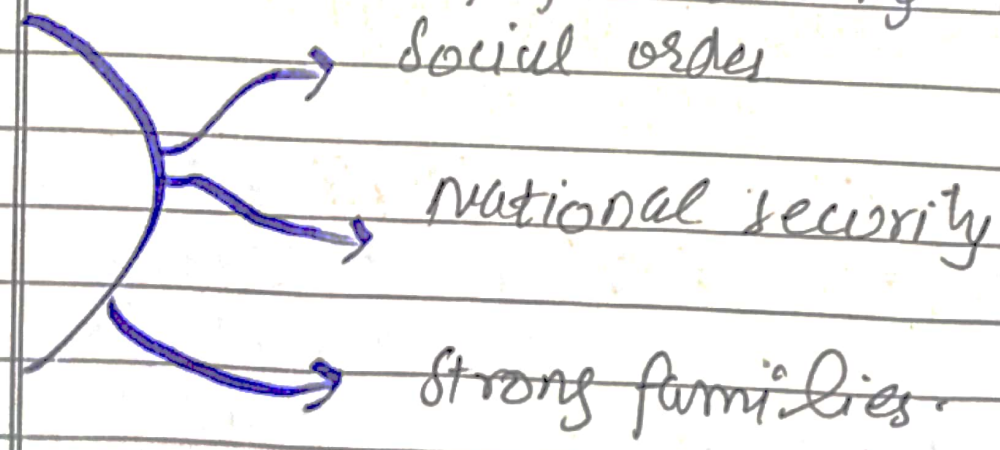 Social order
National security
Strong families.